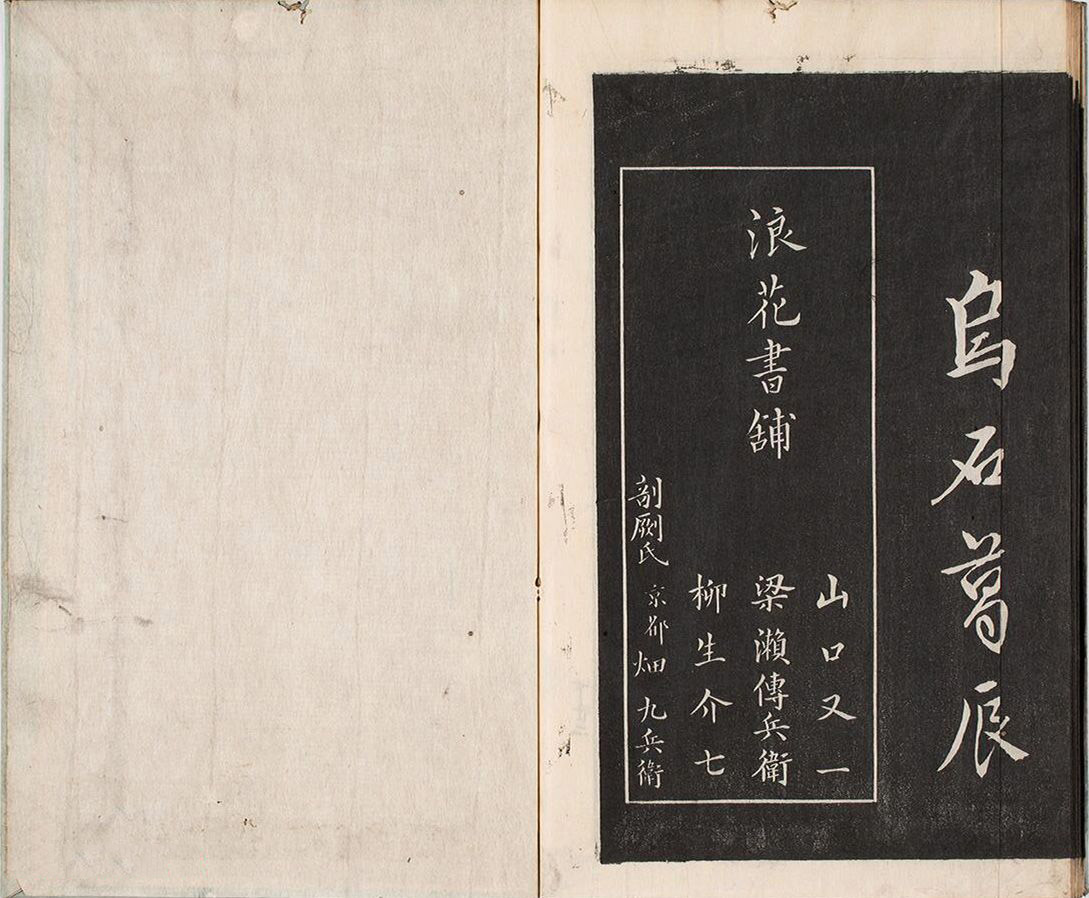 烏石葛辰
浪花書舗
山口又一
梁瀬傳兵衛
柳生介七
剞劂氏 京都 畑九兵衛